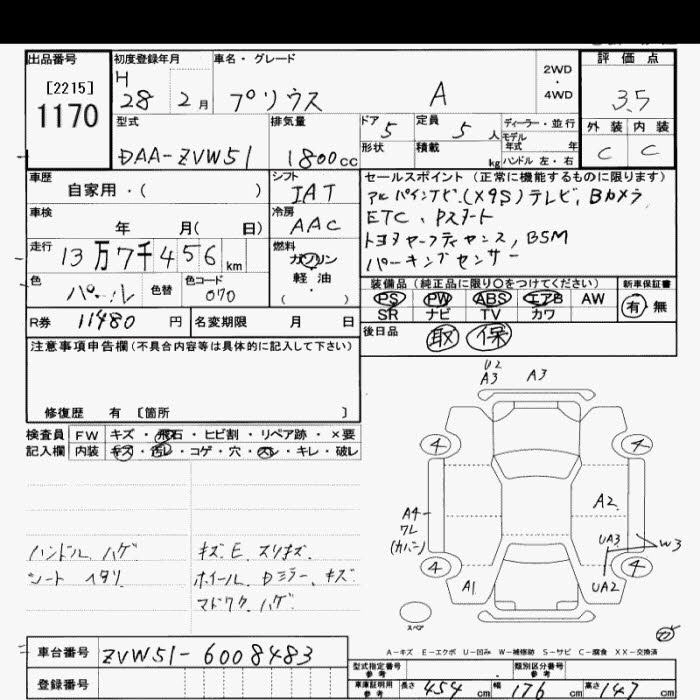 出品番号 初度登録年月 車名・グレード 2WD・4WD 評価点
[2215]
1170
H
28 2月 プリウス A 3.5
外装 内装
C C
型式 排気量 ドア 定員 ディーラー・並行
DAA-ZVW51 1800cc 5 5人 モデル年式 年
形状 積載 kg ハンドル 左・右
車歴 シフト セールスポイント (正常に機能するものに限ります)
自家用・( ) IAT アルパインナビ(X9S)テレビ,Bカメラ
車検 冷房 ETC、Pスタート
年 月( 日) AAC トヨタセーフティセンス,BSM
走行 燃料 パーキングセンサー
13万7千456km ガソリン
軽油
・
( )
色 色替 色コード
パール 070
装備品(純正品に限り○をつけてください) 新車保証書
PS PW ABS エアB AW 有 無
SR ナビ TV カワ
R券 11480円 名変期限 月 日
後日品 取 保
注意事項申告欄(不具合内容等は具体的に記入して下さい)
修復歴 有 [箇所 ]
検査員 FW キズ・飛石・ヒビ割・リペア跡・×要
記入欄 内装 キズ・汚レ・コゲ・穴・スレ・キレ・破レ
ハンドル ハゲ
シート ヘタリ
キズ、E、スリキズ、
ホイール、Dミラー、キズ
マドワク、ハゲ
U2
A3 A3
4 4
A4
ワレ
(カバー)
A2
UA3
W3
4 4
A1 UA2
スペア
A-キズ E-エクボ U-凹み W-補修跡 S-サビ C-腐食 XX-交換済
車台番号 ZVW51-6008483
登録番号
型式指定番号 参考 類別区分番号 参考
車庫証明用 参考 長さ 454cm 幅 176cm 高さ 147cm